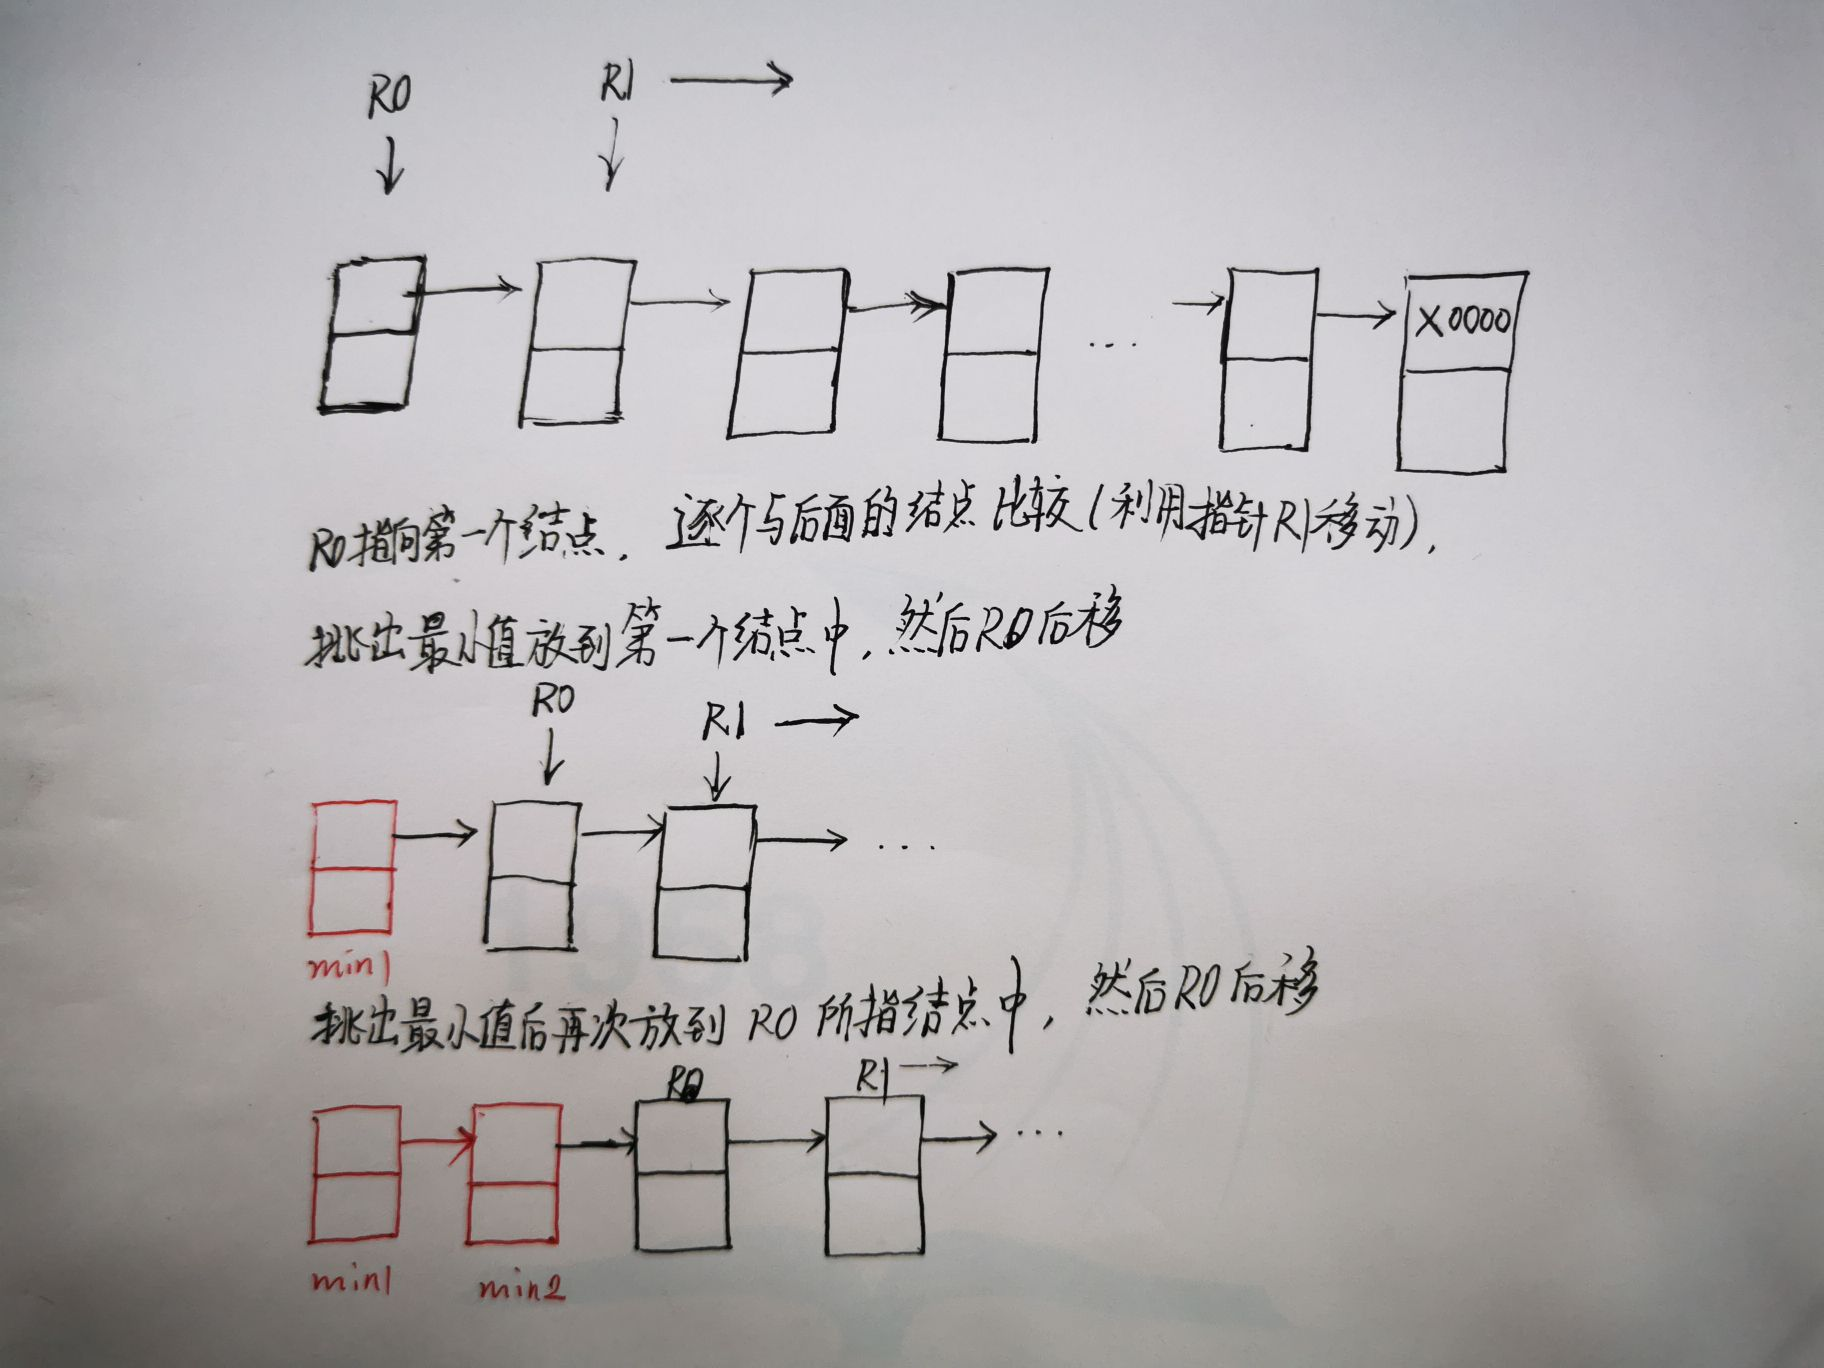 R0 R1
X0000
...
R0指向第一个结点，逐个与后面的结点比较（利用指针R1移动），
挑出最小值放到第一个结点中，然后R0后移
R0 R1
...
min1
挑出最小值后再次放到 R0 所指结点中，然后R0后移
R0 R1
...
min1 min2